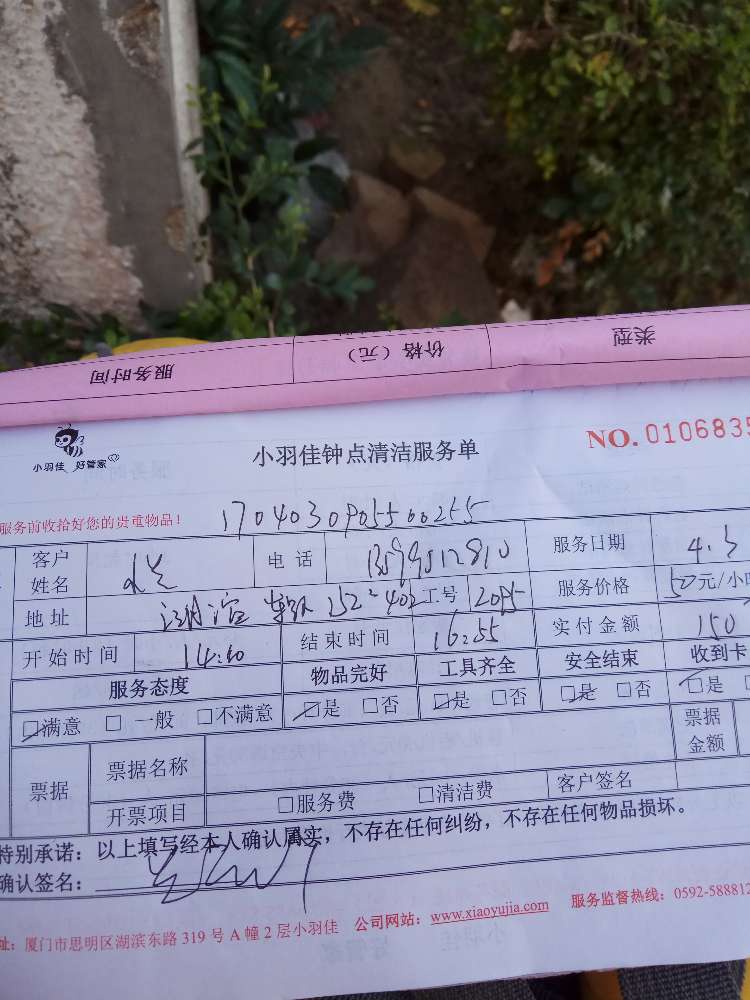 类型 价格（元） 服务时间
小羽佳 好管家
小羽佳钟点清洁服务单
NO. 0106835
服务前收拾好您的贵重物品！
客户姓名 电话 13599512810 服务日期 4.3
地址 工号 2095 服务价格 50元/小时
开始时间 14:10 结束时间 16:55 实付金额 150
服务态度 物品完好 工具齐全 安全结束 收到卡
☑满意 □ 一般 □不满意 ☑是 □否 ☑是 □否 ☑是 □否 ☑是
票据 票据名称 票据金额
开票项目 □服务费 □清洁费 客户签名
特别承诺：以上填写经本人确认属实，不存在任何纠纷，不存在任何物品损坏。
确认签名：
址：厦门市思明区湖滨东路 319 号 A 幢 2 层小羽佳 公司网站：www.xiaoyujia.com 服务监督热线：0592-588812